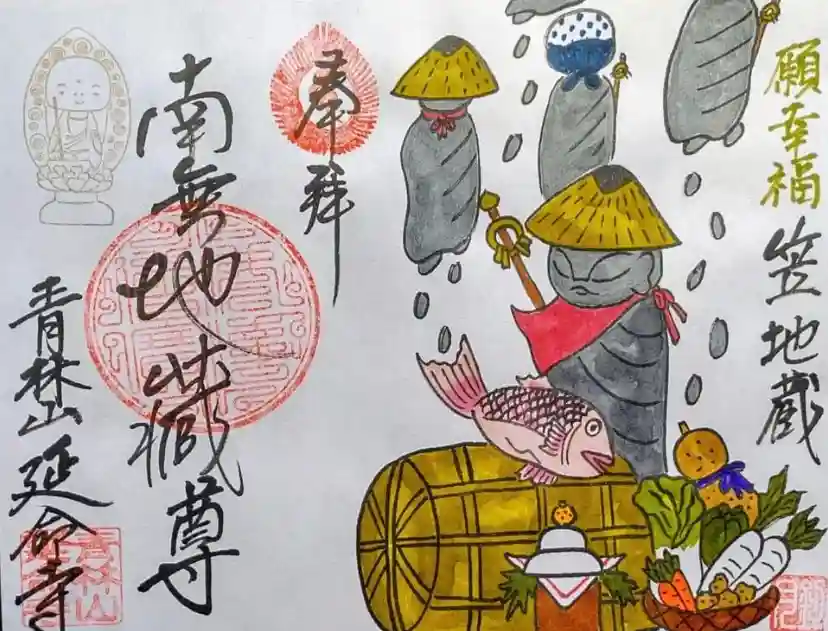 願幸福
笠地蔵
奉拝
南無地蔵尊
青林山延命寺